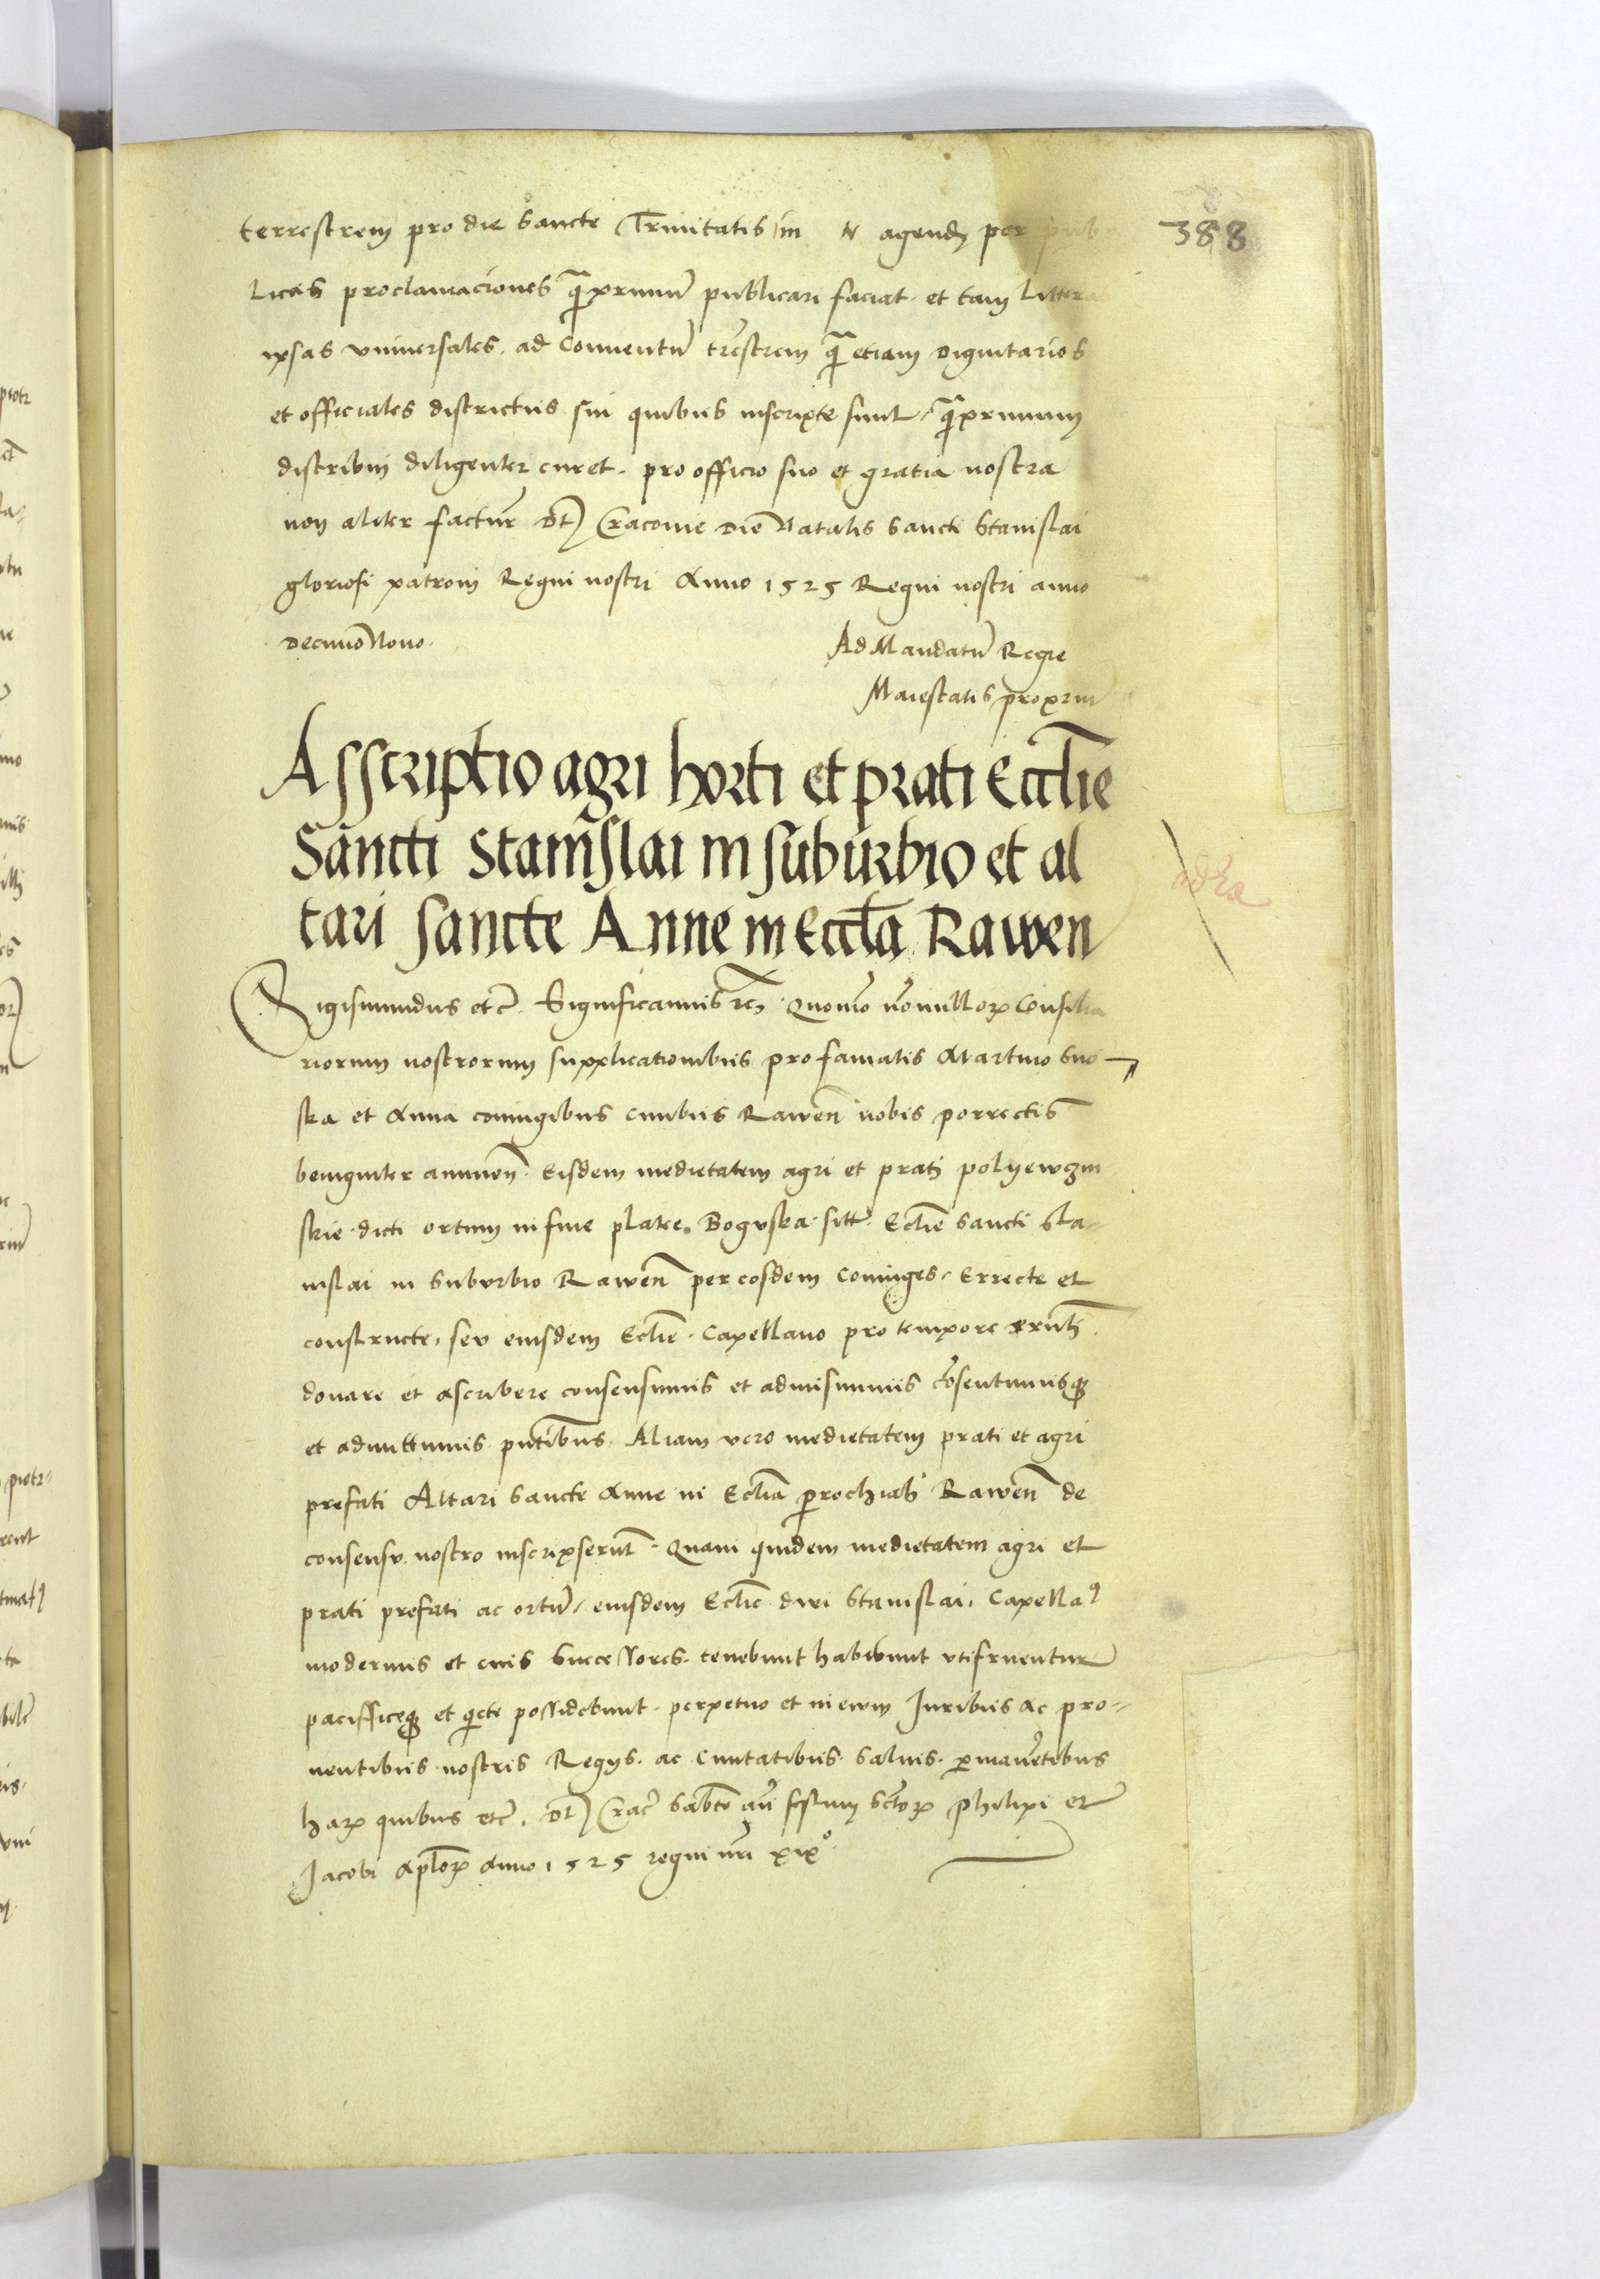 388
terrestrem pro die Sancte Trinitatis in agend per pub
licas proclamaciones q̄prımū publicari faciat et tam littera
ipsas vniuersales ad Conuentū trrestrem q̄ etiam dignitarios
et officiales districtus sui quibus inscripte sunt q̄primum
distribui diligenter curet. pro officio suo et gratia nostra
non aliter factur̄ Dt Cracouie Die Natalis Sancti Stanislai
gloriosi patroni Regni nostri Anno 1525 Regni nostri anno
decimo Nono.
Ad Mandatū Regie
Maiestatis propriū
Asscriptio agri horti et prati Eccl̄ie
Sancti Stanislai in suburbio et al
tari sancte Anne in Eccl̄a Rawen
Sigismundus etc̄. Significamus Quomo nōnullor Consilia
riorum nostrorum supplicationibus pro famatis Martino Suo
ska et Anna coniugibus ciuibus Rawen̄ nobis porrectis
benigniter annuen̄. Eisdem medietatem agri et prati polyewzin
skie dicti ortum in fine platee Boguska sitt̄. Ecl̄ie Sancti Sta-
nislai in Suburbio Rawen̄ per eosdem Coniuges Errecte et
constructe, seu eiusdem Ecl̄ie Capellano pro tempore
donare et ascribere consensimus et admisimus cōsentimusq
et admittimus pn̄tibus. Aliam vero medietatem prati et agri
prefati Altari Sancte Anne in Ecl̄ia p̄rochiali Rawen̄ de
consensu nostro inscripserūt. Quam quidem medietatem agri et
prati prefati ac ortū, eiusdem Ecl̄ie diui Stanislai, Capella9
modernus et eius Successores. tenebunt habebunt vtifruentur
pacifficeq et q̄iete possidebunt. perpetuo et in ewm Juribus ac pro-
uentibus nostris Regys. ac Ciuitatibus saluis. p̄manētibus
har quibus etc̄. Dt Crac̄ Sabto an̄ festum Sctor Philipi et
Jacobi Apl̄or Anno 1525 regni nr̄i xix°